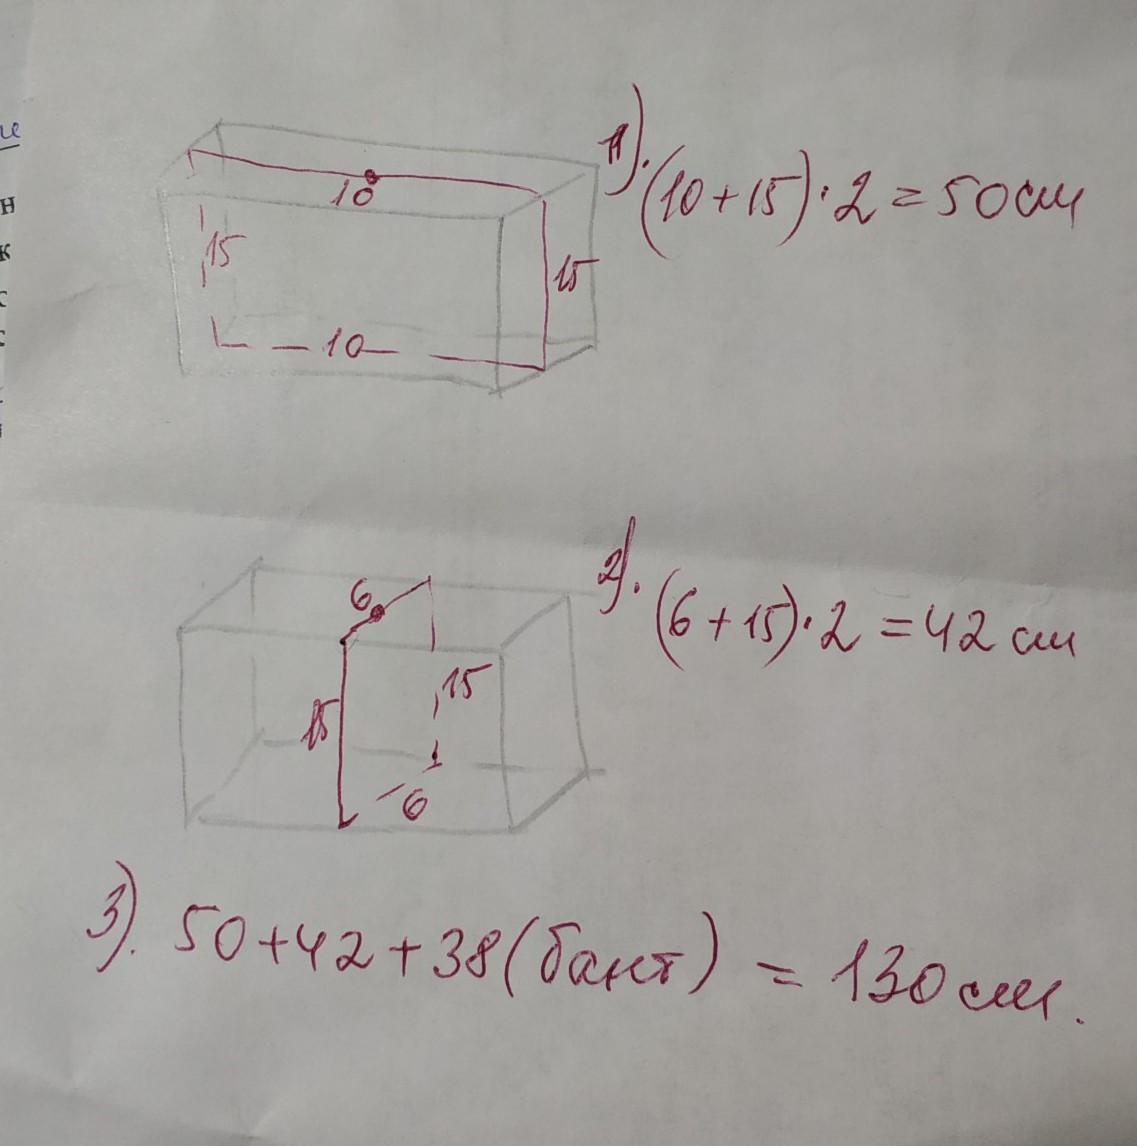 1). (10+15)·2=50см
10
15
15
10
2). (6+15)·2=42 см
6
15
15
6
3). 50+42+38(бант) = 130 см.